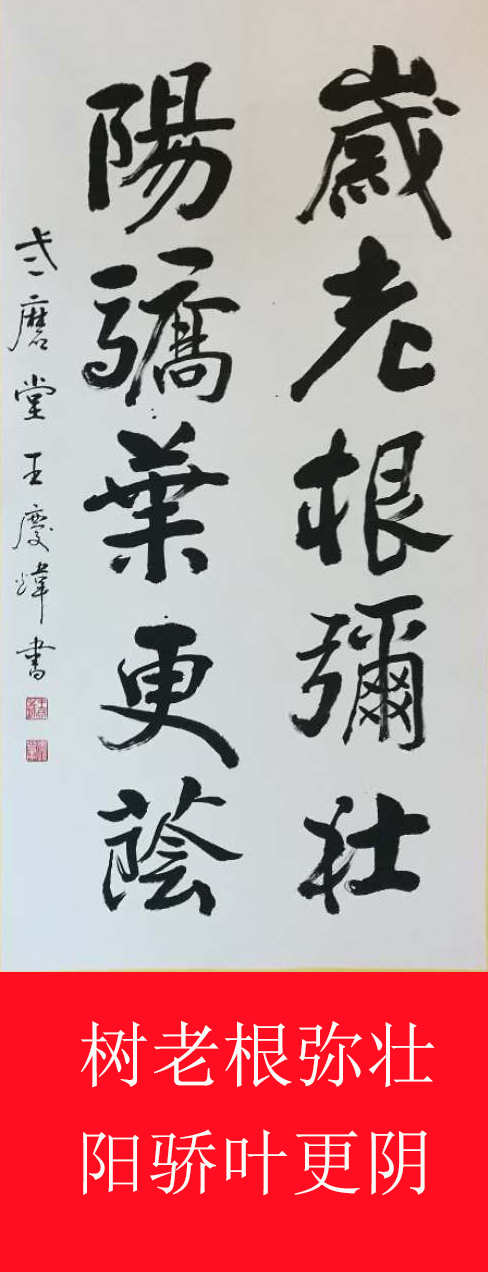 歲老根彌壯
陽驕葉更蔭
磨堂王慶煒書
树老根弥壮
阳骄叶更阴